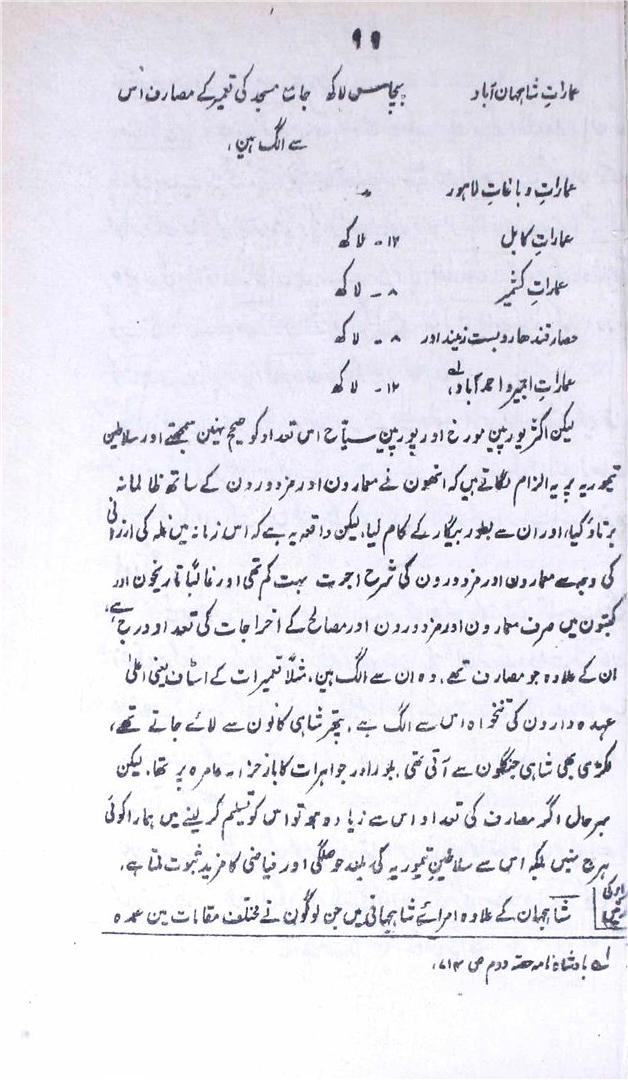 ۹۹
عمارات شاہجہان آباد پچاس لاکھ جامع مسجد کی تعمیر کے مصارف اس
سے الگ ہین،
عمارات و باغات لاہور
عمارات کابل ۱۲ - لاکھ
عمارات کشمیر ۸ - لاکھ
حصار قندھار و بست زمیند اور ۸ - لاکھ
عمارات اجمیر و احمد آباد، ۱۲ - لاکھ
لیکن اکثر یورپین مورخ اور یورپین سیاح اس تعداد کو صحیح نہین سمجھتے اور سلاطین
تیموریہ پر یہ الزام لگاتے ہیں کہ انھون نے معمارون اور مزدورون کے ساتھ ظالمانہ
برتاؤ کیا، اور ان سے بطور بیگار کے کام لیا، لیکن واقعہ یہ ہے کہ اس زمانہ میں غلہ کی ارزانی
کی وجہ سے معمارون اور مزدورون کی شرح اجرت بہت کم تھی اور غالباً تاریخون اور
کتبون میں صرف معمارون اور مزدورون اور مصالح کے اخراجات کی تعداد درج ہے،
ان کے علاوہ جو مصارف تھے، وہ ان سے الگ ہین، مثلاً تعمیرات کے اسٹاف یعنی اعلیٰ
عہدہ دارون کی تنخواہ اس سے الگ ہے، پتھر شاہی کانون سے لائے جاتے تھے،
لکڑی بھی شاہی جنگلون سے آتی تھی، بلور اور جواہرات کا بار خزانہ عامرہ پر تھا، لیکن
بہر حال اگر مصارف کی تعداد اس سے زیادہ ہو تو اس کو تسلیم کر لینے میں ہمارا کوئی
ہرج نہیں بلکہ اس سے سلاطین تیموریہ کی بلند حوصلگی اور فیاضی کا مزید ثبوت ملتا ہے،
شاہجہان کے علاوہ امرائے شاہجہانی میں جن لوگون نے مختلف مقامات مین عمدہ
لہ بادشاہ نامہ حصہ دوم ص ۷۱۴،